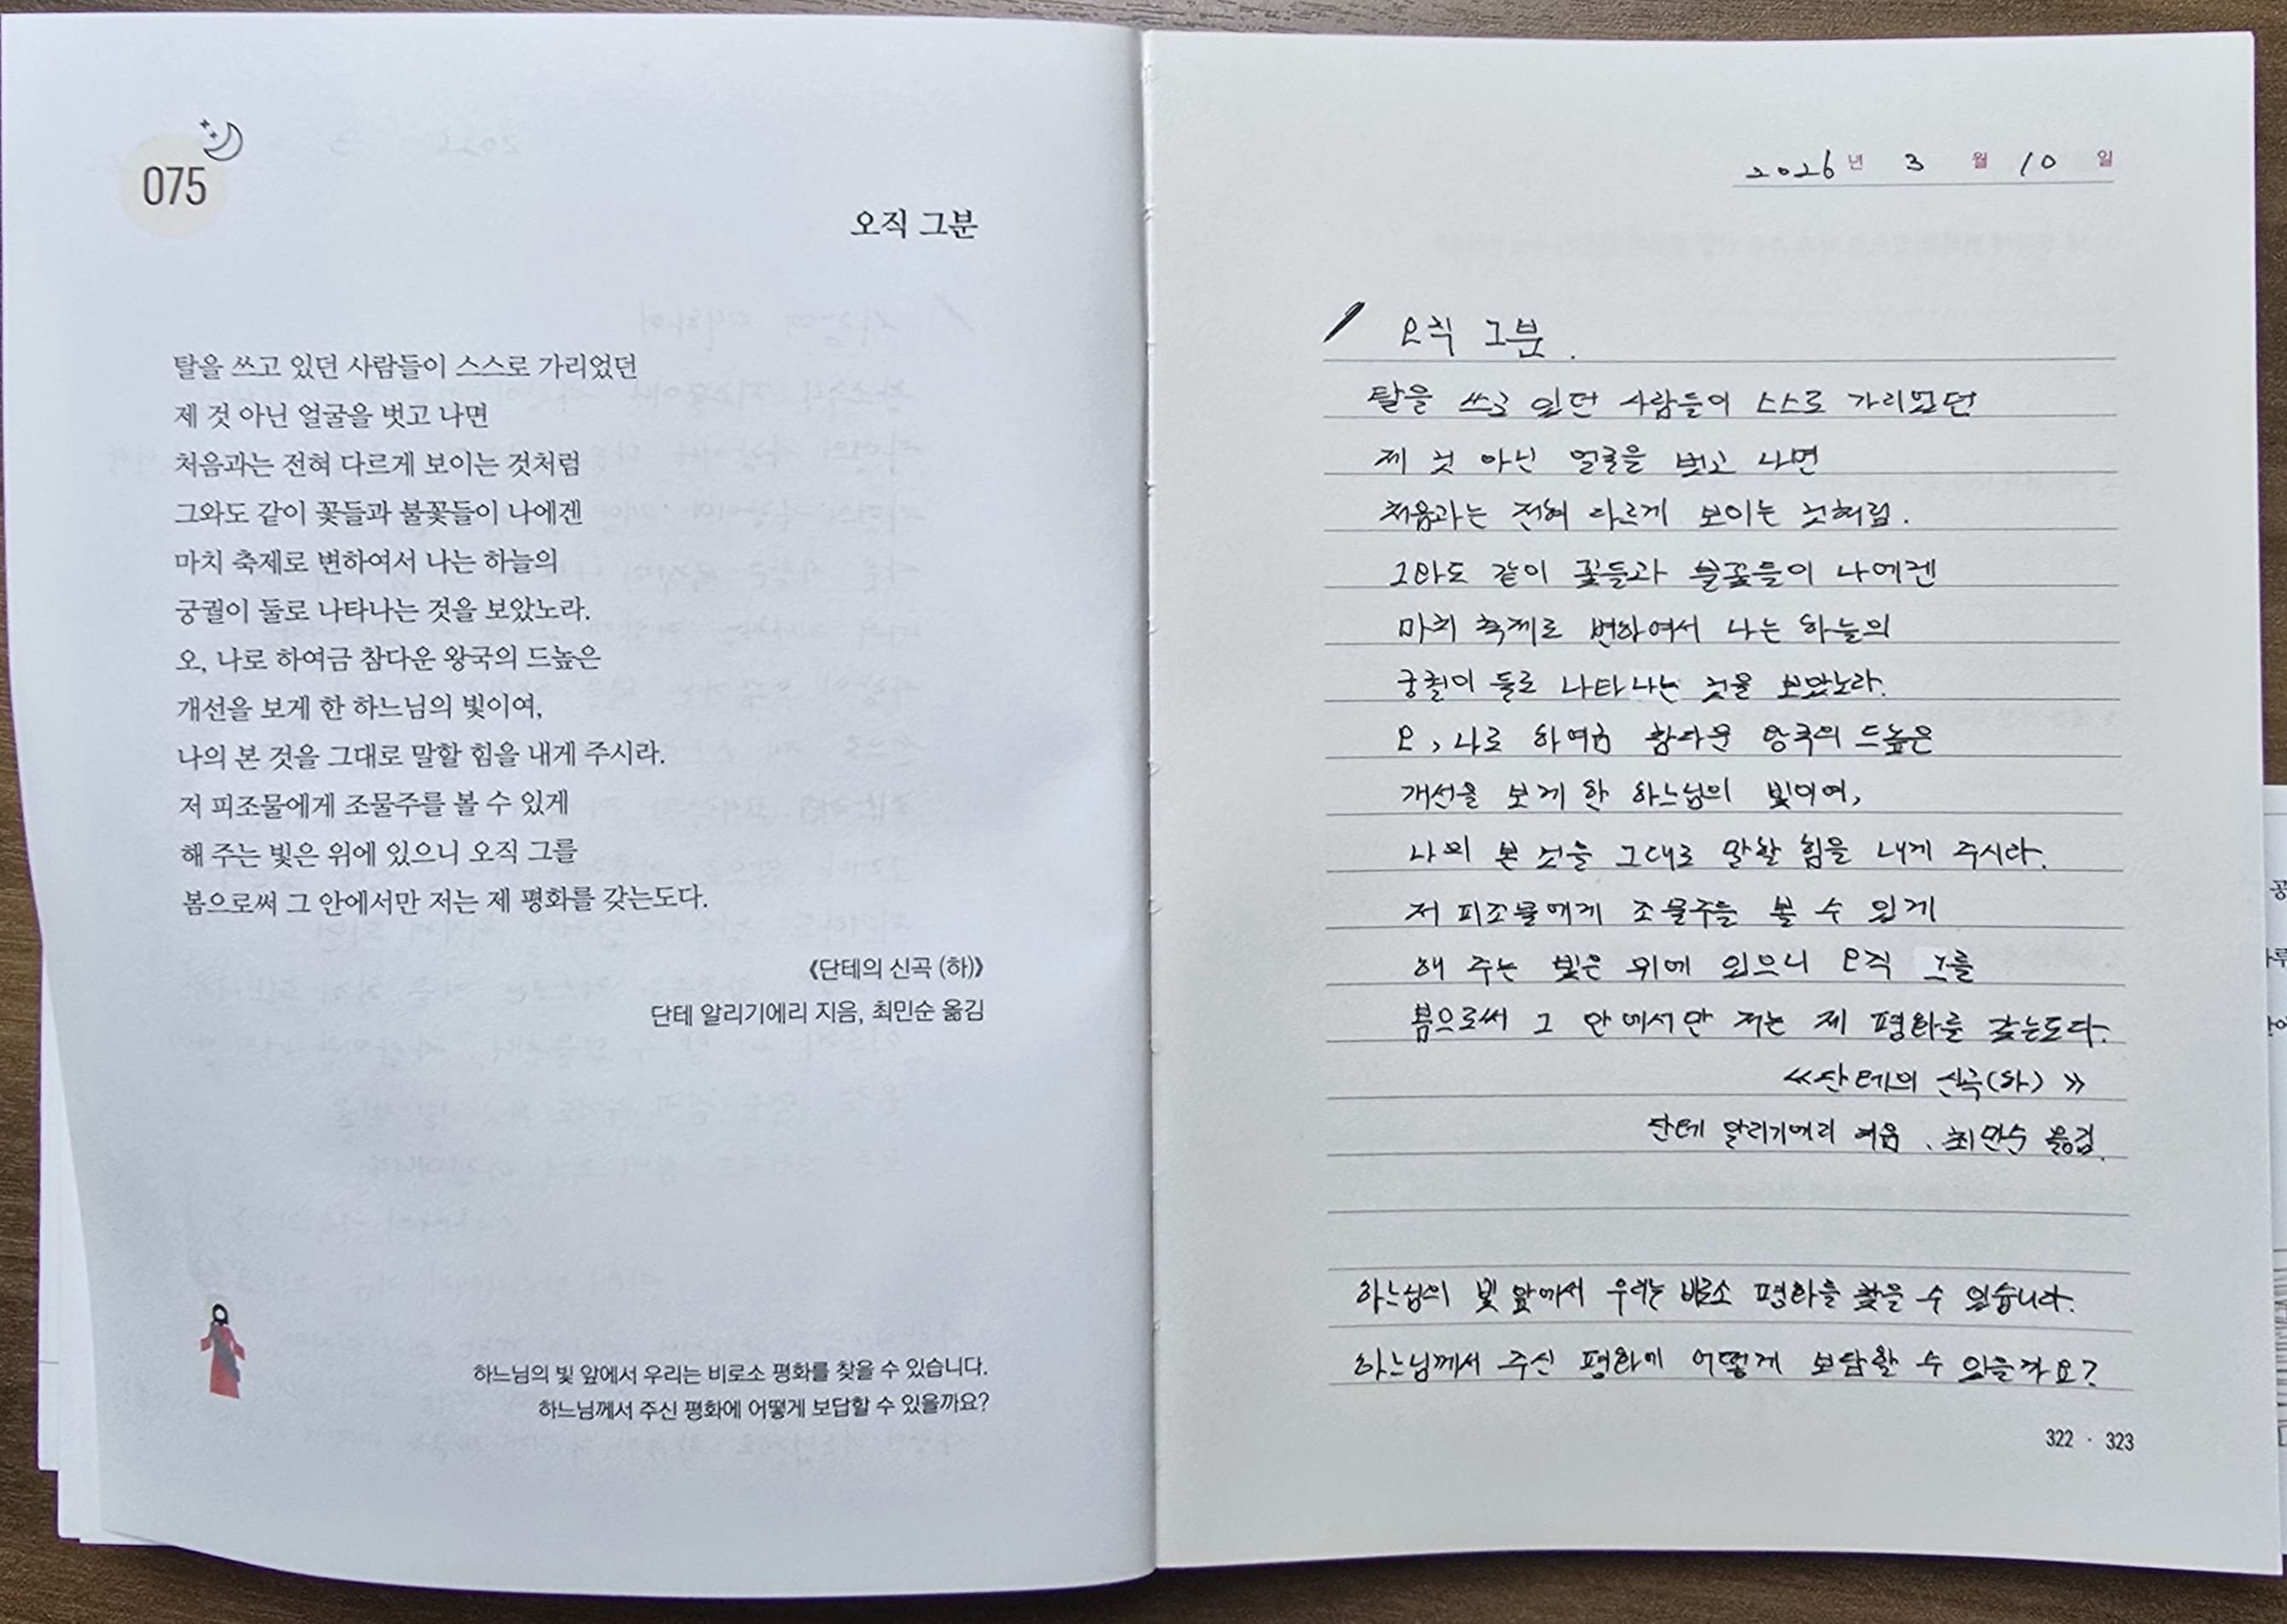 075
오직 그분
탈을 쓰고 있던 사람들이 스스로 가리었던
제 것 아닌 얼굴을 벗고 나면
처음과는 전혀 다르게 보이는 것처럼
그와도 같이 꽃들과 불꽃들이 나에겐
마치 축제로 변하여서 나는 하늘의
궁궐이 둘로 나타나는 것을 보았노라.
오, 나로 하여금 참다운 왕국의 드높은
개선을 보게 한 하느님의 빛이여,
나의 본 것을 그대로 말할 힘을 내게 주시라.
저 피조물에게 조물주를 볼 수 있게
해 주는 빛은 위에 있으니 오직 그를
봄으로써 그 안에서만 저는 제 평화를 갖는도다.
《단테의 신곡 (하)》
단테 알리기에리 지음, 최민순 옮김
하느님의 빛 앞에서 우리는 비로소 평화를 찾을 수 있습니다.
하느님께서 주신 평화에 어떻게 보답할 수 있을까요?
2026년 3월 10일
오직 그분.
탈을 쓰고 있던 사람들이 스스로 가리었던
제 것 아닌 얼굴을 벗고 나면
처음과는 전혀 다르게 보이는 것처럼.
그와도 같이 꽃들과 불꽃들이 나에겐
마치 축제로 변하여서 나는 하늘의
궁궐이 둘로 나타나는 것을 보았노라.
오, 나로 하여금 참다운 왕국의 드높은
개선을 보게 한 하느님의 빛이여,
나의 본 것을 그대로 말할 힘을 내게 주시라.
저 피조물에게 조물주를 볼 수 있게
해 주는 빛은 위에 있으니 오직 그를
봄으로써 그 안에서만 저는 제 평화를 갖는도다.
《단테의 신곡(하)》
단테 알리기에리 옮김
하느님의 빛 앞에서 우리는 비로소 평화를 찾을 수 있습니다.
하느님께서 주신 평화에 어떻게 보답할 수 있을까요?
322 · 323